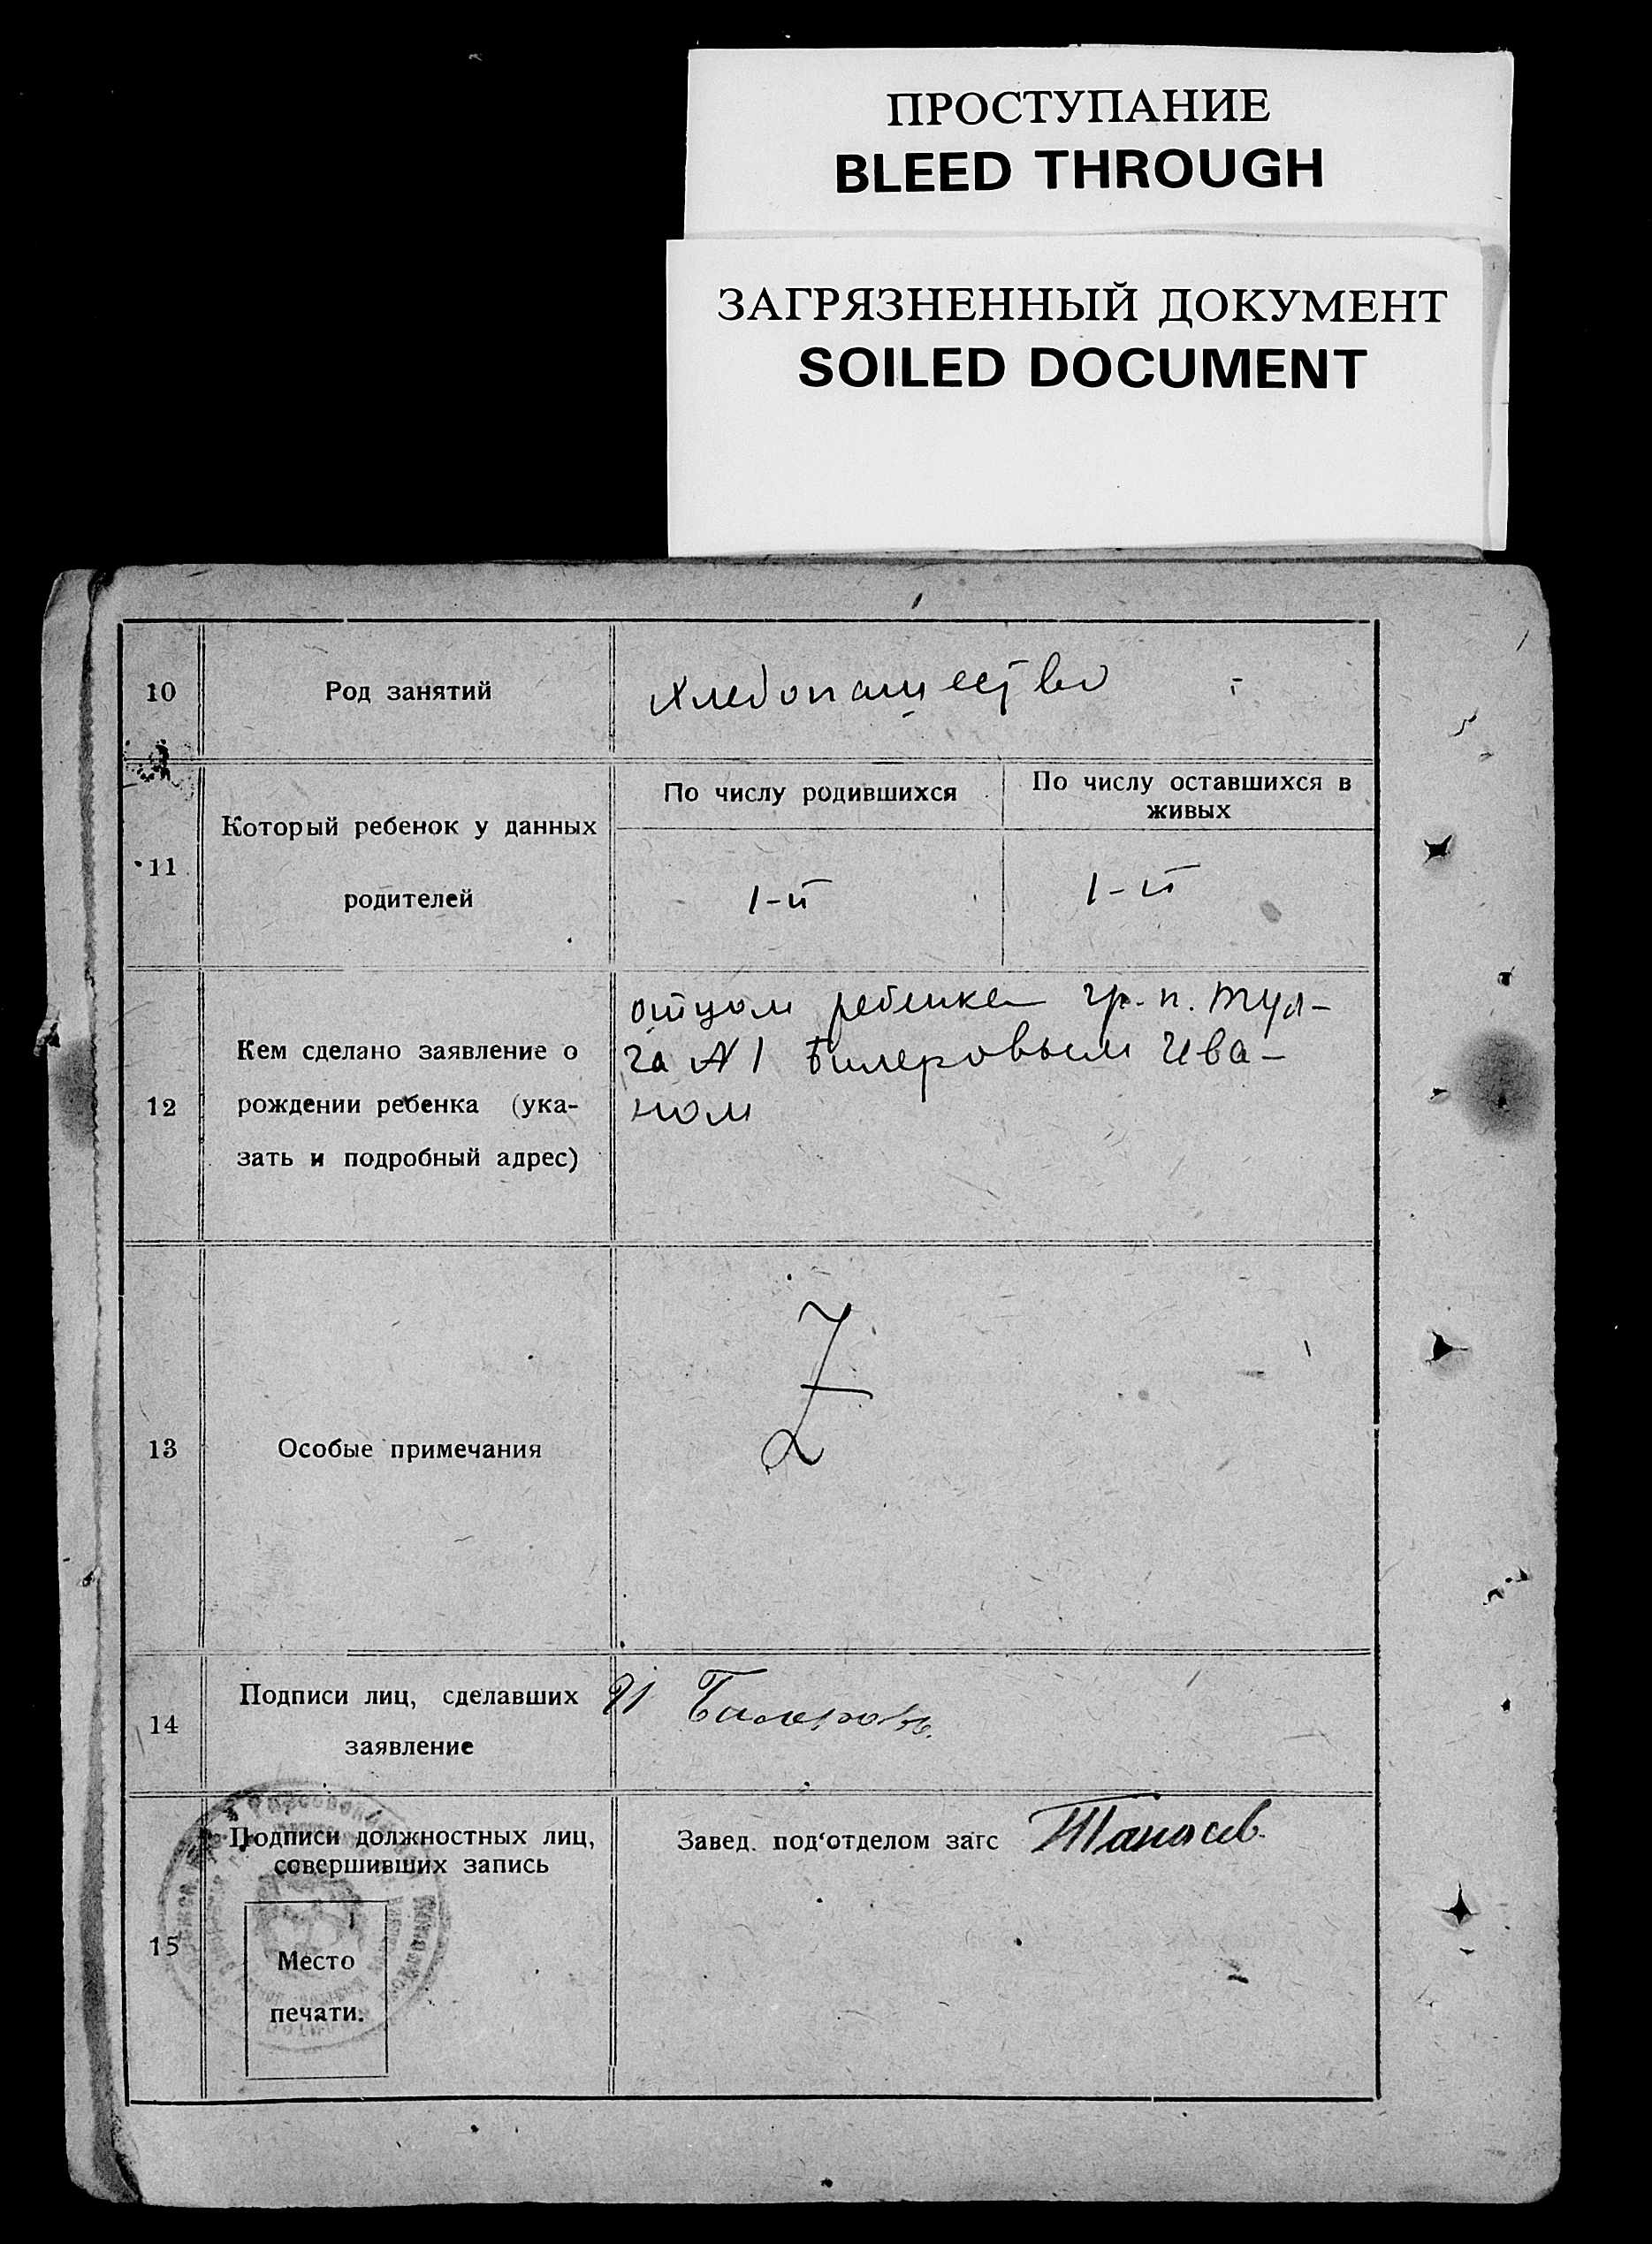 ПРОСТУПАНИЕ
BLEED THROUGH
ЗАГРЯЗНЕННЫЙ ДОКУМЕНТ
SOILED DOCUMENT
10
Род занятий
хлебопашество
11
Который ребенок у данных
родителей
По числу родившихся
По числу оставшихся в
живых
1-й
1-й
12
Кем сделано заявление о
рождении ребенка (ука-
зать и подробный адрес)
отцом ребенка гр. п. Тул-
га № 1 Билеровым Ива-
ном
13
Особые примечания
Z
14
Подписи лиц, сделавших
заявление
И Билеровъ
15
Подписи должностных лиц,
совершивших запись
Место
печати.
Завед. под'отделом загс